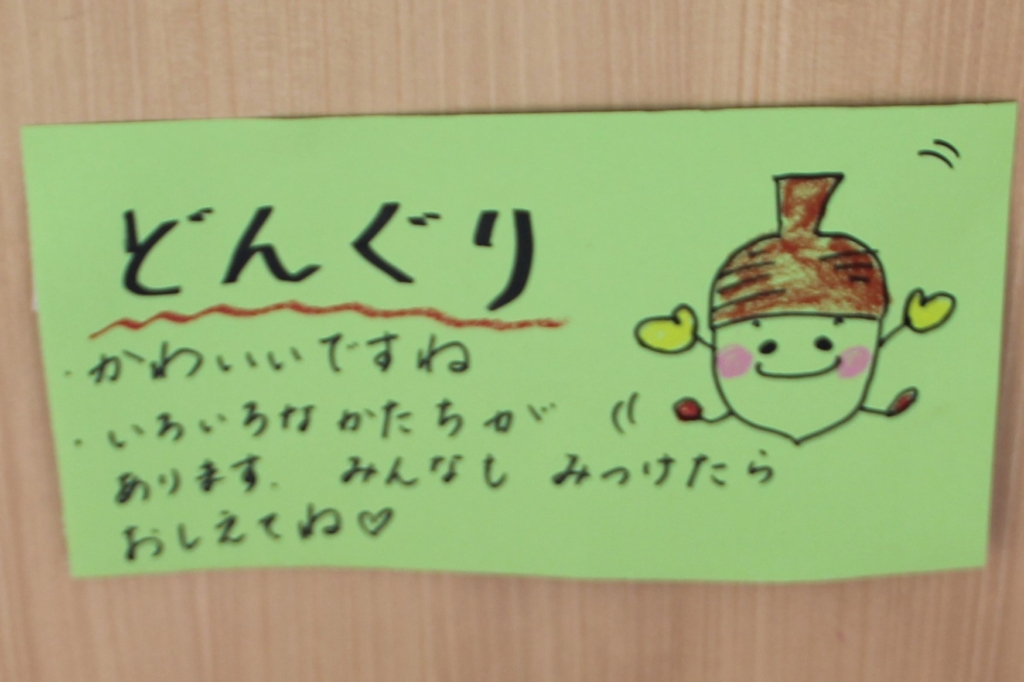 どんぐり
・かわいいですね
・いろいろなかたちが
あります. みんなし みつけたら
おしえてね♡